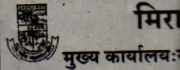 मिरा
मुख्य कार्यालयः